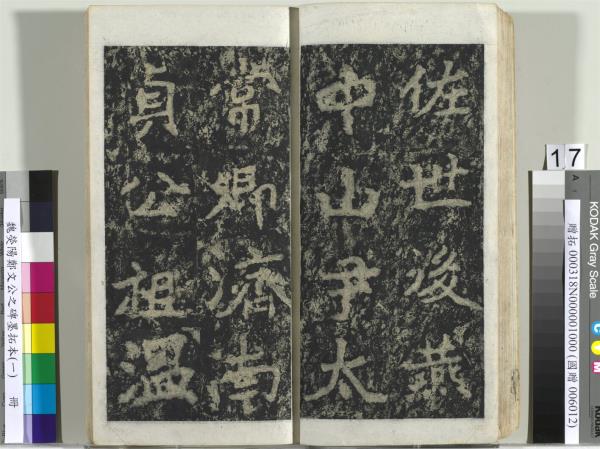 佐世後燕
中山尹太
常卿濟南
貞公祖溫
魏滎陽鄭文公之碑墨拓本(一) 冊
17
KODAK Gray Scale
贈拓 000318N000001000 (國贈 006012)
A
C
M
KODAK